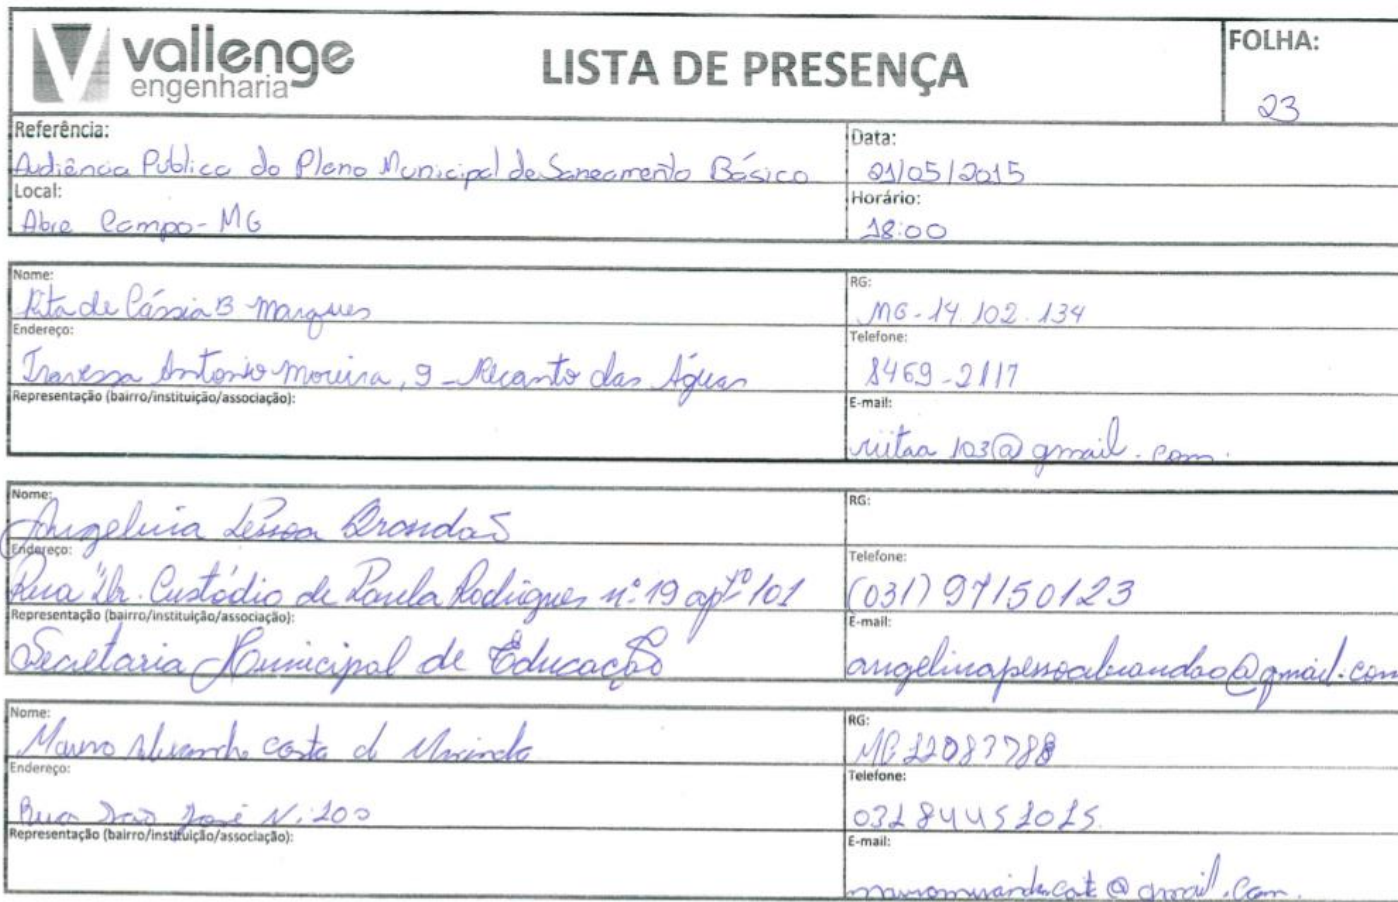 vallenge
engenharia
LISTA DE PRESENÇA
FOLHA:
23
Referência:
Audiência Pública do Plano Municipal de Saneamento Básico
Data:
21/05/2015
Local:
Abre Campo-MG
Horário:
18:00
Nome:
Rita de Cássia B Marques
RG:
MG-14.102.134
Endereço:
Travessa Antonio Moreira, 9 - Recanto das Águas
Telefone:
8469-2117
Representação (bairro/instituição/associação):
E-mail:
riitaa103@gmail.com.
Nome:
Angelina Pessoa Brandão
RG:
Endereço:
Rua Dr. Custódio de Paula Rodrigues nº 19 aptº 101
Telefone:
(031) 97150123
Representação (bairro/instituição/associação):
Secretaria Municipal de Educação
E-mail:
angelinapessoabrandao@gmail.com
Nome:
Mauro Alexandre Costa de Miranda
RG:
MG 12083788
Endereço:
Rua São José N: 200
Telefone:
031 84451015.
Representação (bairro/instituição/associação):
E-mail: